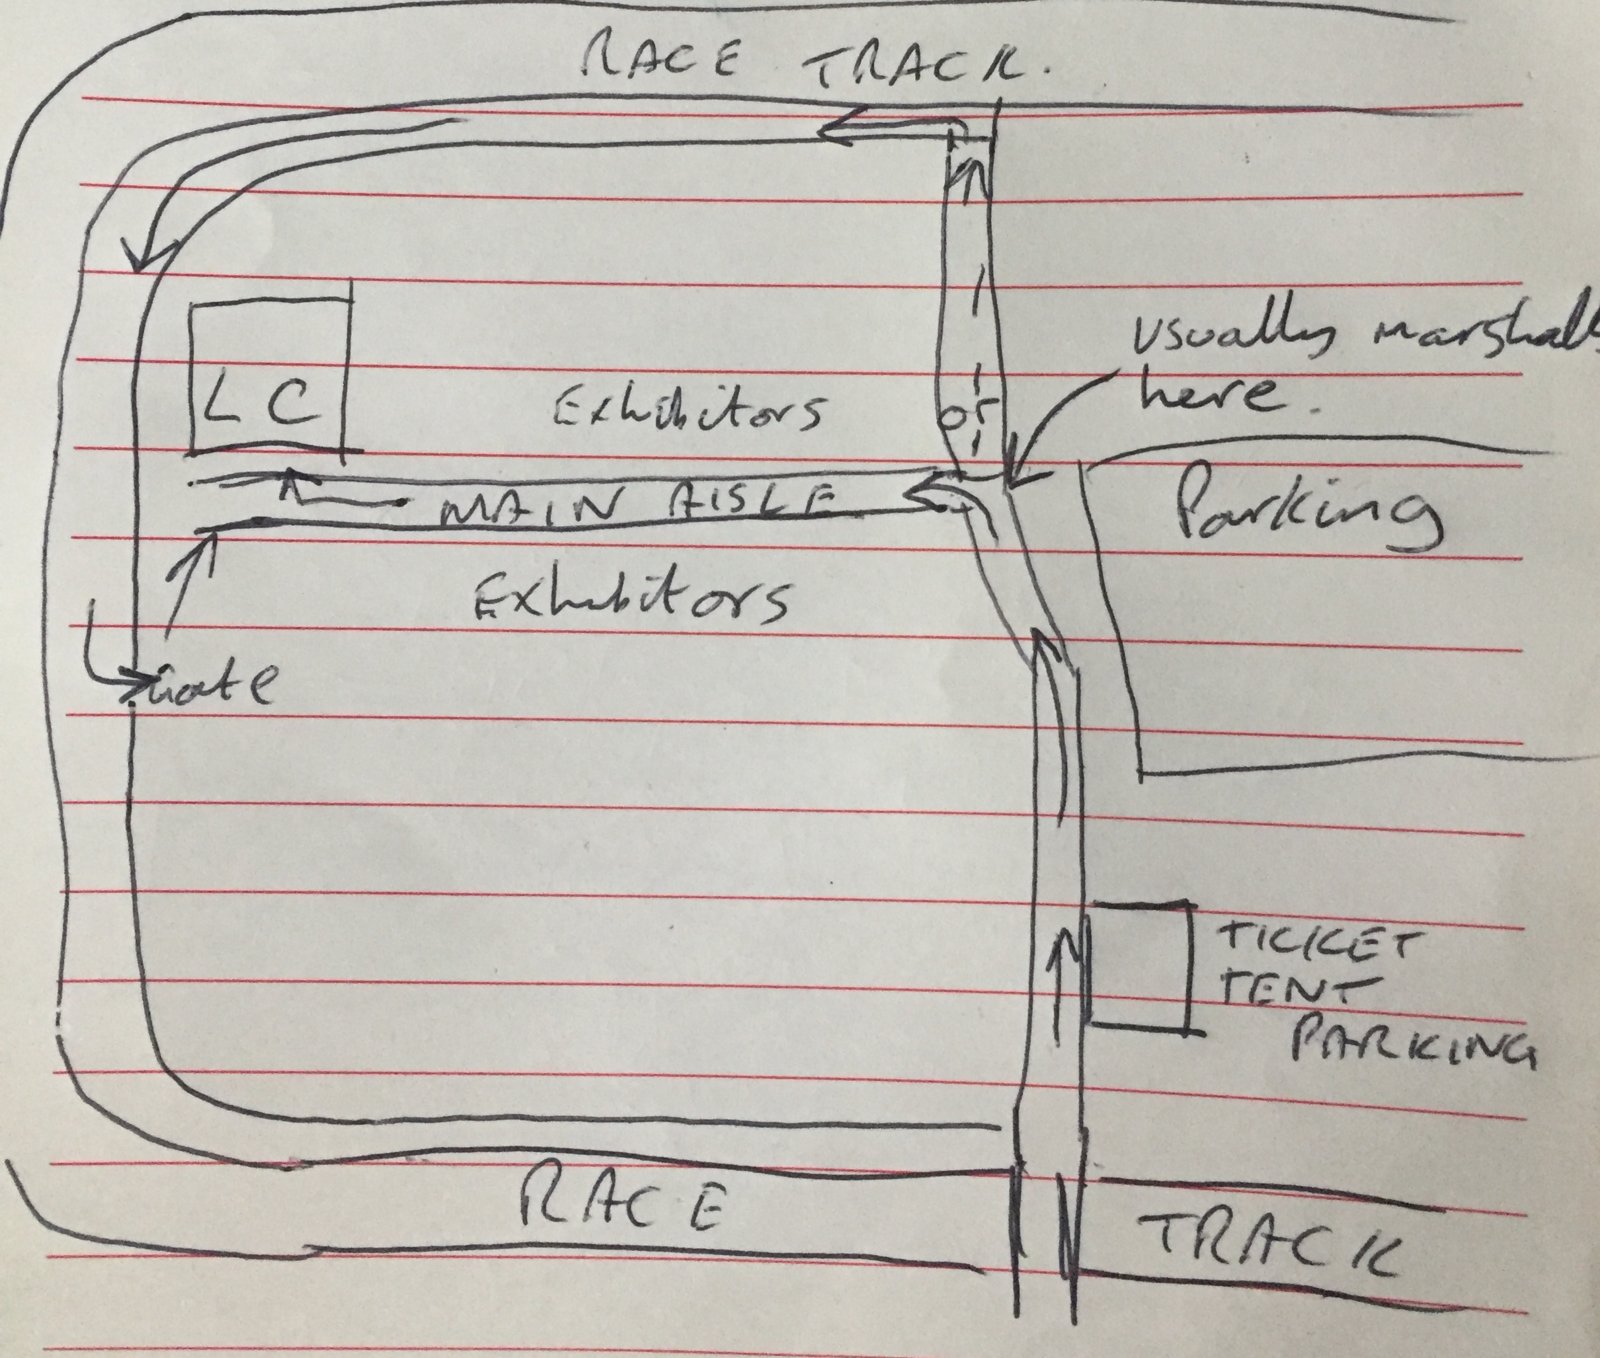 RACE TRACK.
usually marshalls
here.
LC
Exhibitors
or
MAIN AISLE
Parking
Exhibitors
Gate
TICKET
TENT
PARKING
RACE TRACK